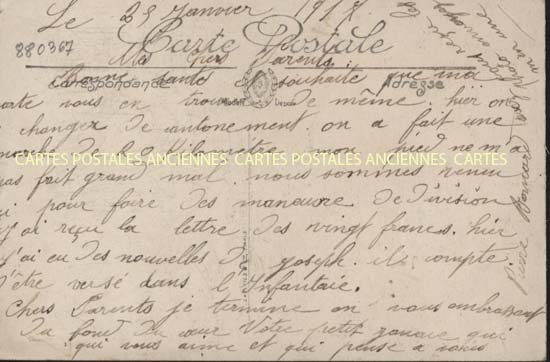 Le 23 Janvier 1917
880367
Carte Postale
Mes chers Parents
Correspondance
Adresse
Bonne santé souhaite que ma
carte vous en trouve de même. hier on
changez de cantonement. on a fait une
CARTES POSTALES ANCIENNES CARTES POSTALES ANCIENNES CARTES
kilomètre mon pied ne m'a
pas fait grand mal. nous sommes venu
ici pour faire des maneuvre de division
j'ai reçu la lettre des vingt francs. hier
j'ai eu des nouvelles de joseph. il compte
d'être versé dans l'Infantaie.
Chers Parents je termine en vous embrassant
du fond du cœur Votre petit qui
qui vous aime et qui pense a vous